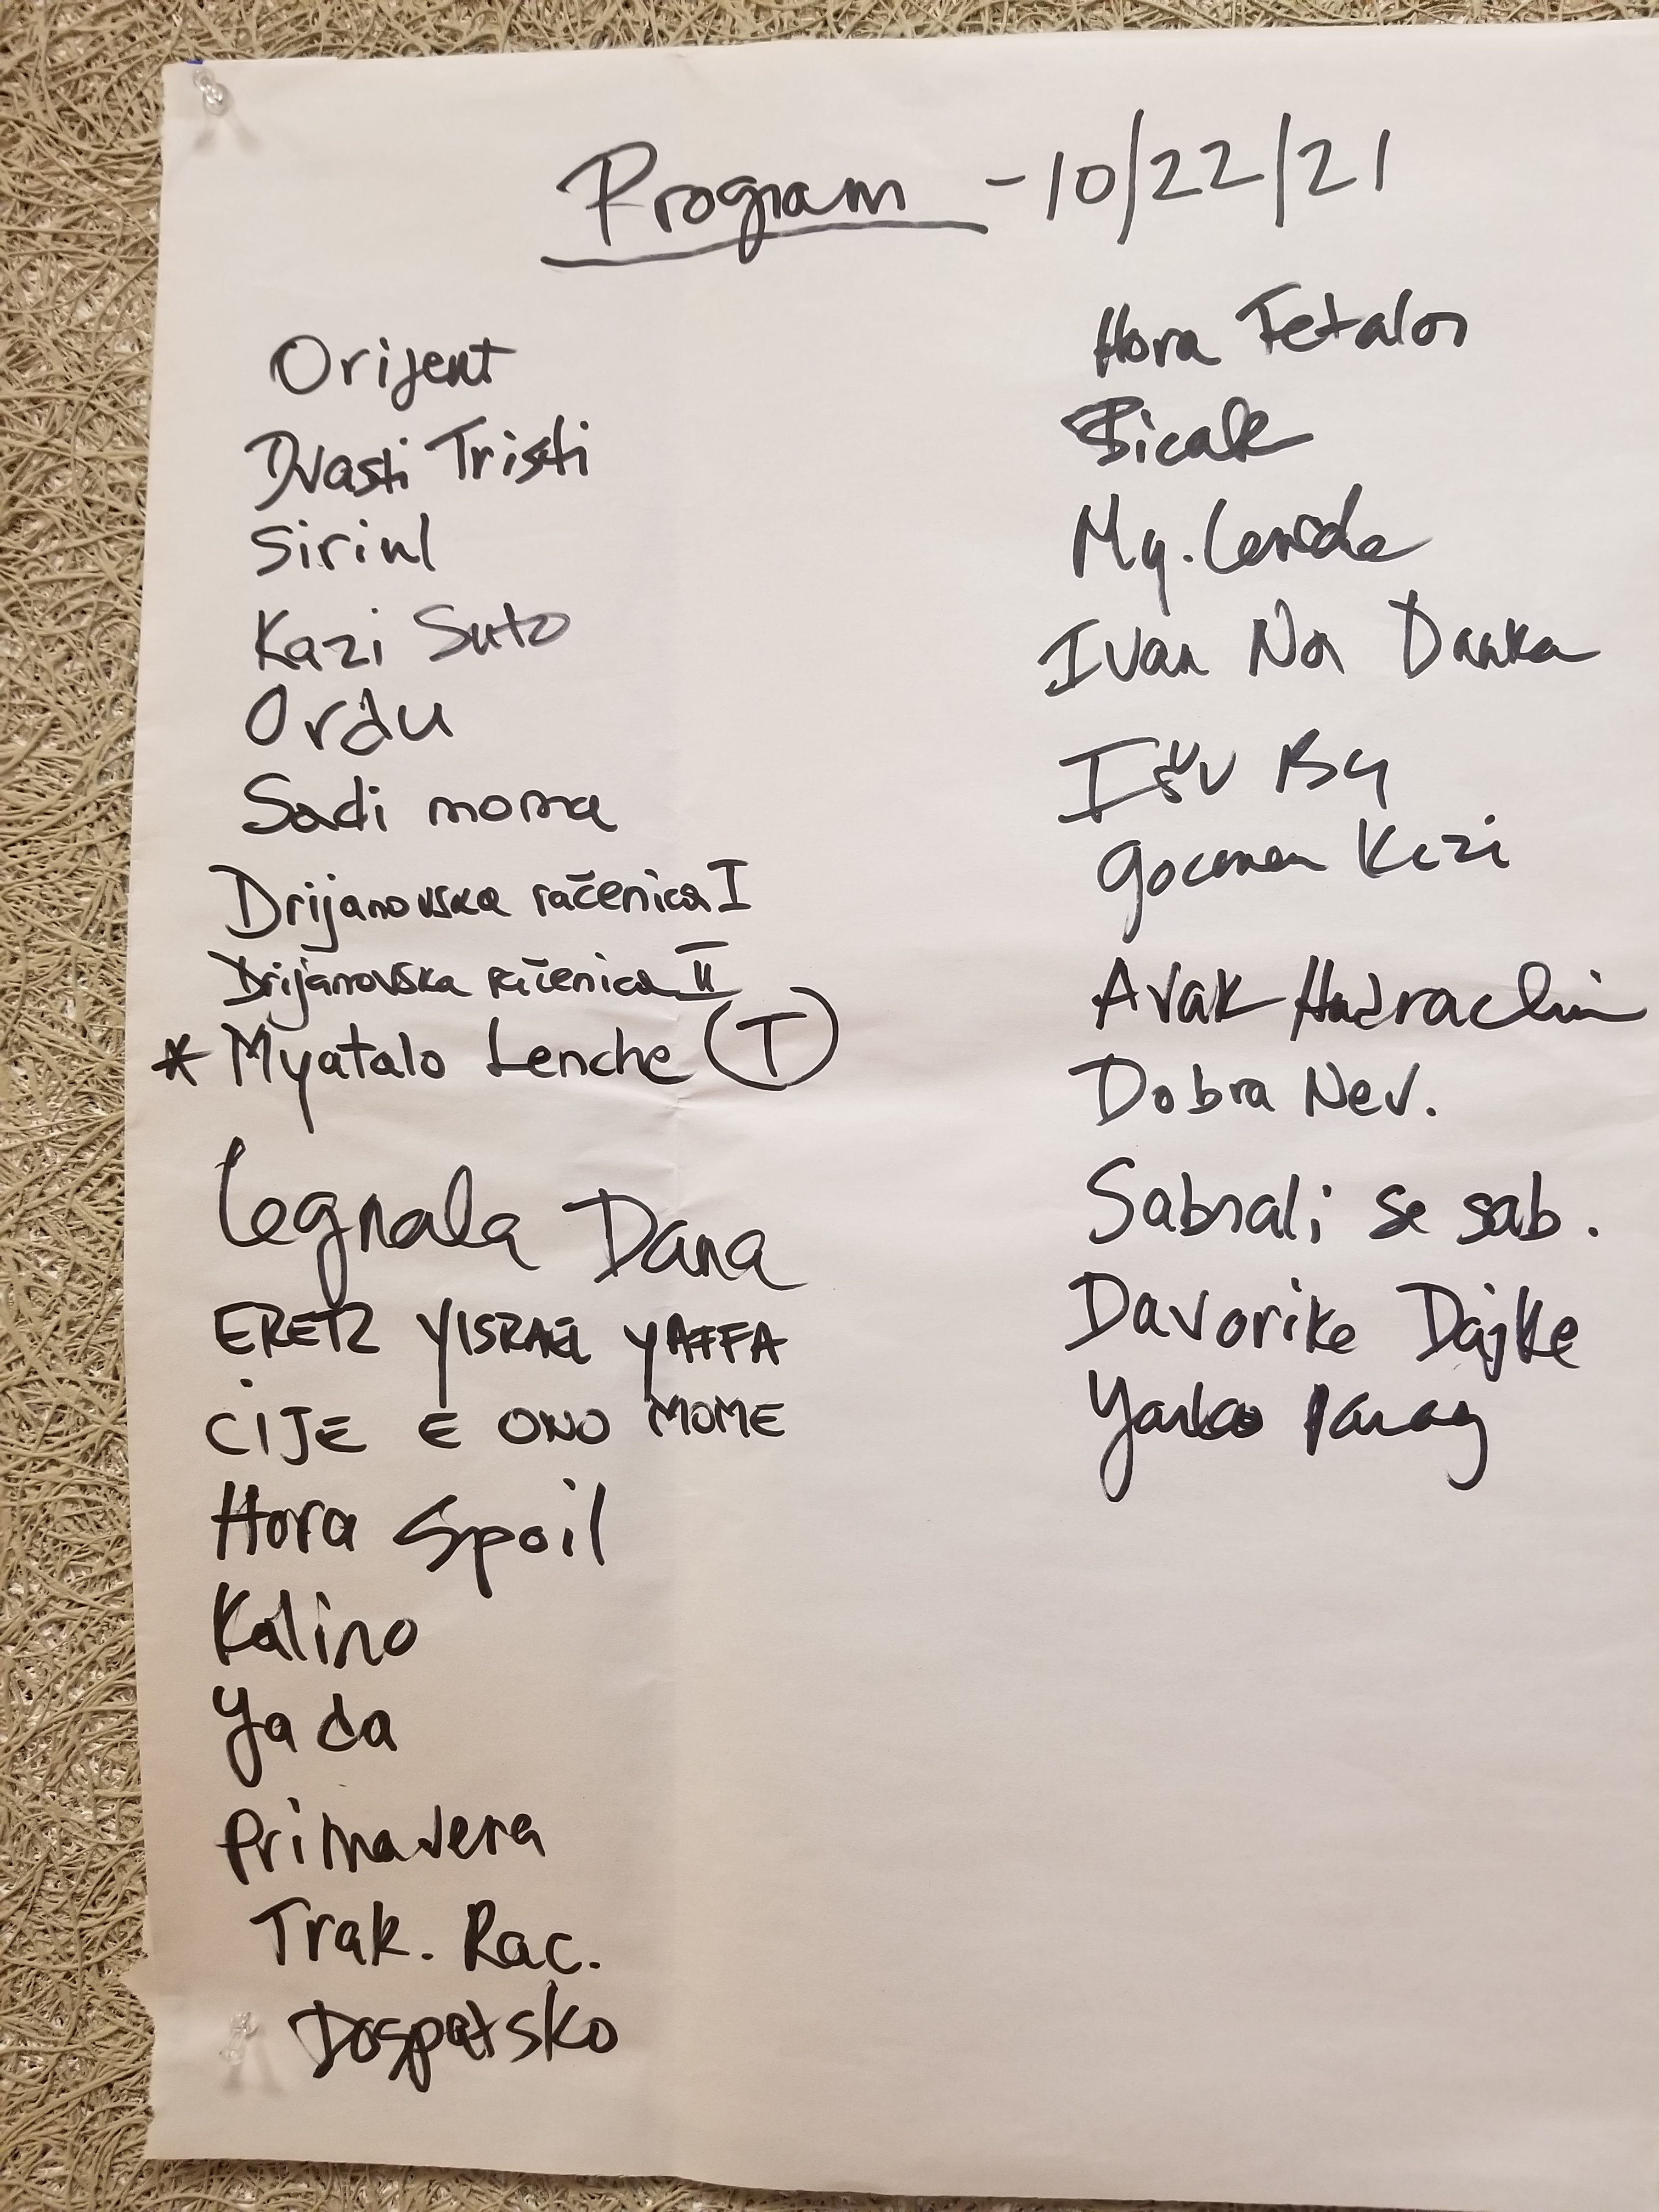 Program - 10/22/21
Orijent
Dvasti Tristi
Sirinl
Kazi Suto
Ordu
Sadi moma
Drijanovska račenica I
Drijanovska račenica II
* Myatalo Lenche (T)
Legnala Dana
ERETZ YISRAEL YAFFA
CIJE E ONO MOME
Hora Spoil
Kalino
Yada
Primavera
Trak. Rac.
Dospatsko
Hora Fetalor
Bicak
My. Lenche
Ivan Na Danka
Išu By
Gocmen Kizi
Avak
Dobra Nev.
Sabrali se sab.
Davorike Dajke